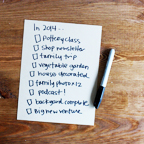 In 2014...
pottery class
shop newsletter
family trip
vegetable garden
house decorated
family photo x 12
podcast!
backyard complete
big new venture